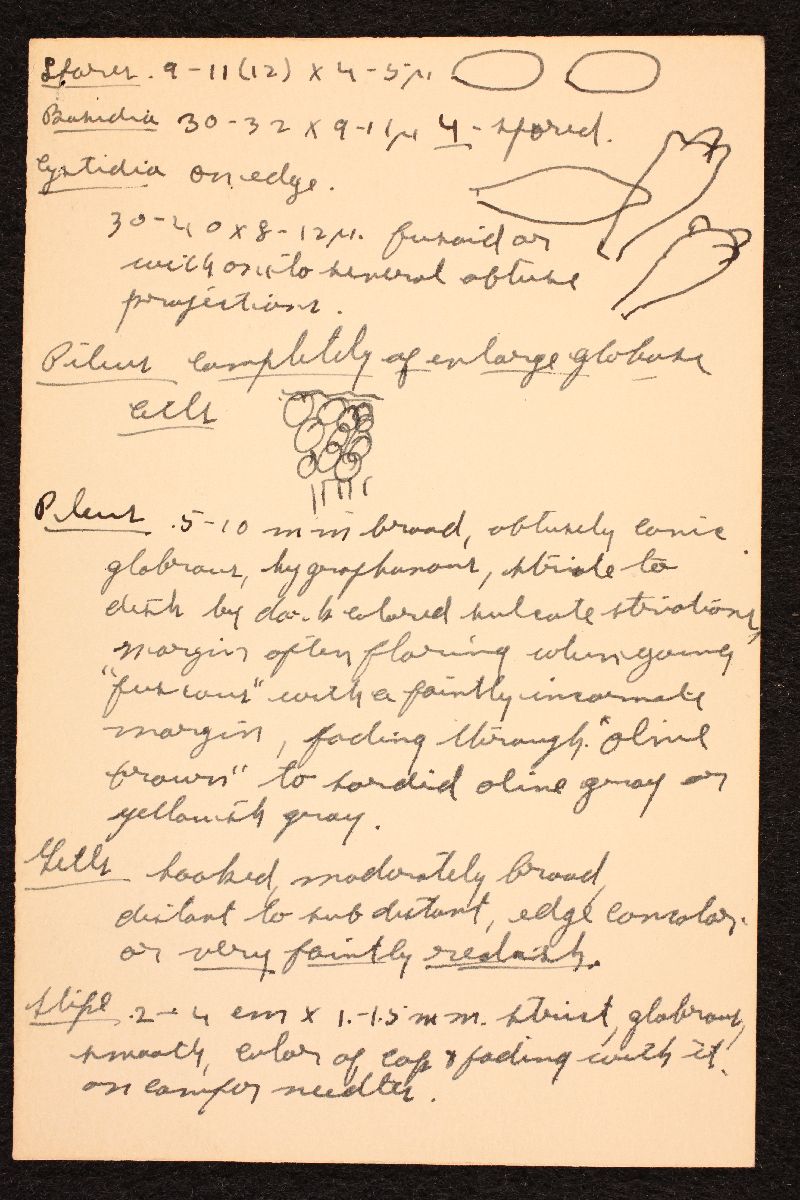 Spores. 9-11(12) x 4-5µ
Basidia 30-32 x 9-11µ 4-spored.
Cystidia on edge.
30-40 x 8-12µ. fusoid or
with one to several obtuse
projections.
Pileus completely of enlarge globose
cells
Pileus .5-10 mm broad, obtusely conic
glabrous, hygrophanous, striate to
disk by dark colored sulcate striations,
margin often flaring when young
"fuscous" with a faintly incarnate
margin, fading through "olive
brown" to sordid olive gray or
yellowish gray.
Gills hooked, moderately broad,
distant to subdistant, edge concolor.
or very faintly redish.
Stipe .2-4 cm x 1.-1.5 mm. strict, glabrous,
smooth, color of cap & fading with it.
on conifer needles.